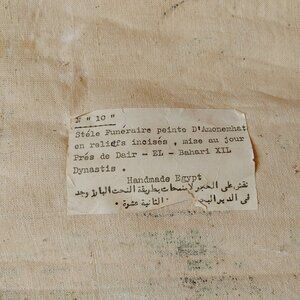 N " 10 "
Stéle Funéraire peinte D'Amonemhat
en reliefs incisés , mise au jour
Prés de Dair - EL - Bahari XII
Dynastis .
Handmade Egypt
نقش على الحجر لامنمحات بطريقة النحت البارز وجد
فى الدير الثانية عشرة .